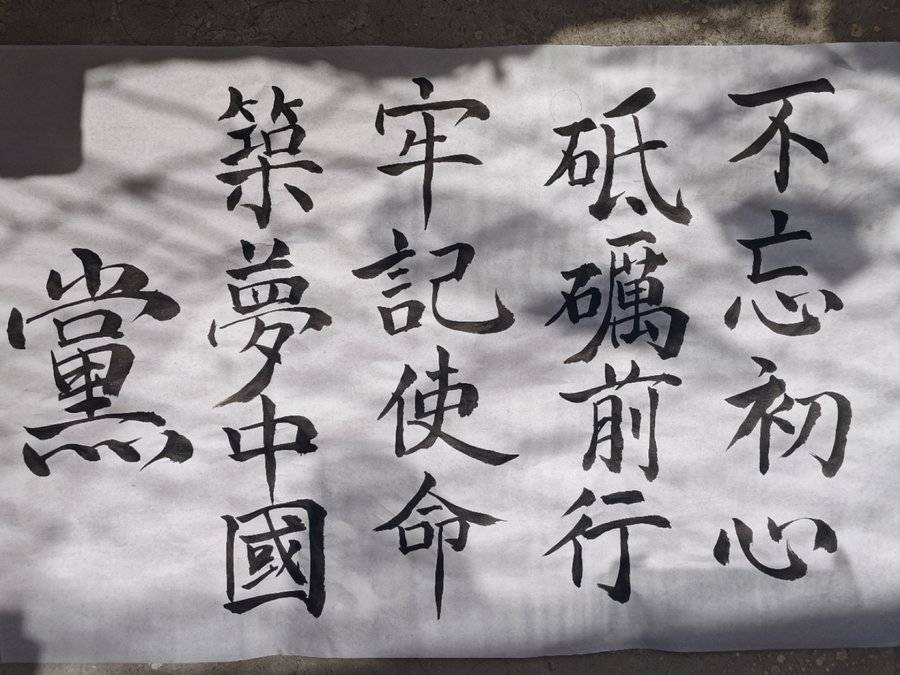 不忘初心
砥礪前行
牢記使命
築夢中國
黨